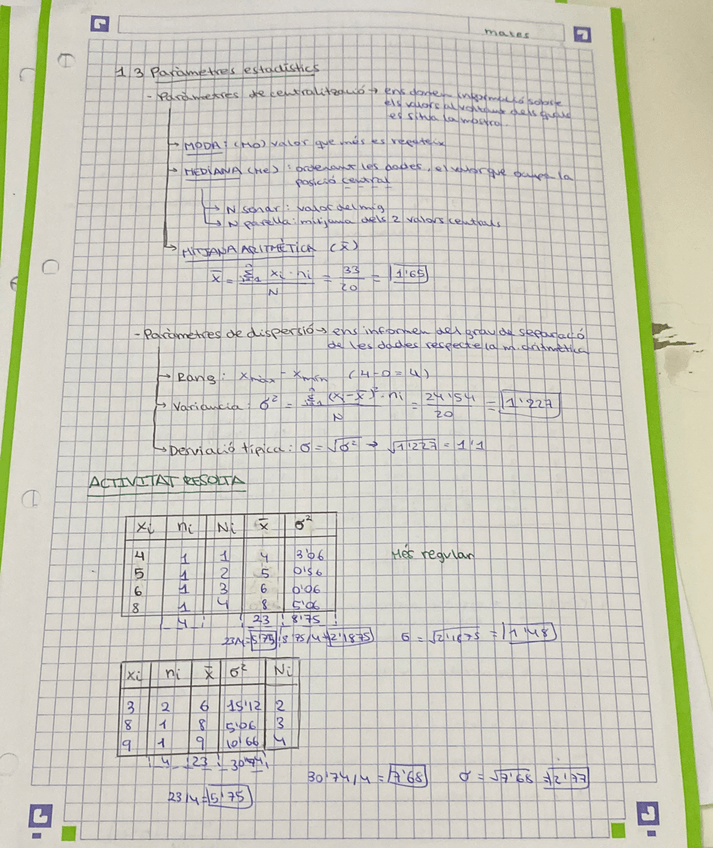 mates
1.3 Paràmetres estadístics
- Paràmetres de centralització → ens donen informació sobre
els valors al voltant dels quals
es situa la mostra.
→ MODA: (Mo) valor que més es repeteix
→ MEDIANA (Me): ordenant les dades, el valor que ocupa la
posició central
→ N senar: valor del mig
→ N parella: mitjana dels 2 valors centrals
→ MITJANA ARITMÈTICA (x̄)
x̄ = Σ xi · ni / N = 33 / 20 = 1'65
- Paràmetres de dispersió → ens informen del grau de separació
de les dades respecte la m. aritmètica
→ Rang: xmàx - xmín (4-0=4)
→ Variancia: σ² = Σ (xi - x̄)² · ni / N = 24'54 / 20 = 1'227
→ Desviació típica: σ = √σ² → √1'227 = 1'1
ACTIVITAT RESOLTA
xi ni Ni x̄ σ²
4 1 1 4 3'06
5 1 2 5 0'56
6 1 3 6 0'06
8 1 4 8 5'06
4 23 8'75
Més regular
23/4=5'75 8'75/4=2'1875 σ = √2'1875 = 1'48
xi ni x̄ σ² Ni
3 2 6 15'12 2
8 1 8 5'06 3
9 1 9 10'66 4
4 23 30'74
30'74/4=7'68 σ=√7'68=2'77
23/4=5'75